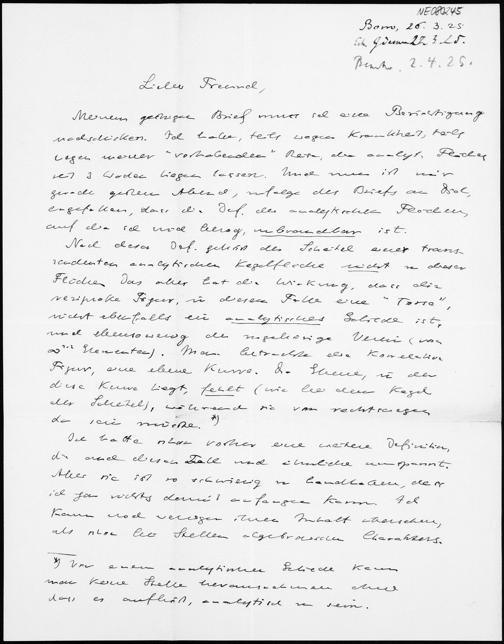 NE080245
Bonn, 26. 3. 25
2. 4. 25.
Lieber Freund,
Meinem gestrigen Brief muss ich eine Berichtigung
nachschicken. Ich habe, teils wegen Krankheit, teils
wegen meiner "vorhabenden" Reise, die analyt. Flächen
seit 3 Wochen liegen lassen. Und nun ist mir
gerade gestern Abend, infolge des Briefs an Dich,
eingefallen, dass die Def. der analytischen Flächen,
auf die ich mich bezog, unbrauchbar ist.
Nach dieser Def. gehört der Scheitel einer trans-
scendenten analytischen Kegelfläche nicht zu dieser
Fläche. Das aber hat die Wirkung, dass die
reziproke Figur, in diesem Falle eine "Torse",
nicht ebenfalls ein analytisches Gebilde ist,
und ebensowenig der zugehörige Verein (von
Elementen). Man betrachte die Korrelation
Figur, eine ebene Kurve. Die Ebene, in der
diese Kurve liegt, fehlt (wie bei dem Kegel
der Scheitel), während sie von rechtswegen
da sein müsste. *)
Ich hatte schon vorher eine weitere Definition,
die auch diesen Fall und ähnliche umspannt.
Aber sie ist so schwierig zu handhaben, dass
ich gar nichts damit anfangen kann. Ich
kann noch weniger ihren Inhalt übersehen,
als schon bei Stellen algebraischen Charakters.
*) Von einem analytischen Gebilde kann
man keine Stelle herausnehmen ohne
dass es aufhört, analytisch zu sein.